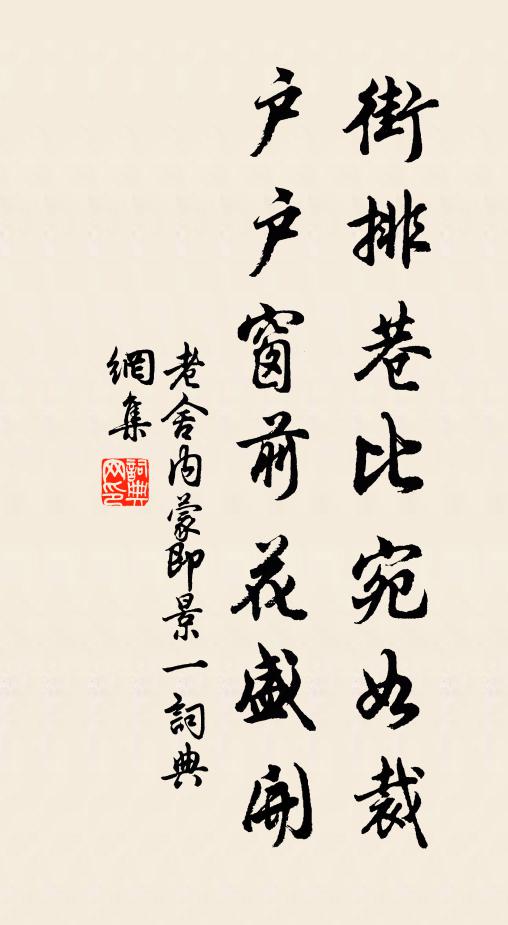 街排巷比宛如裁
户户窗前花盛開
老舍内蒙即景一詞典
網集
詞典網印